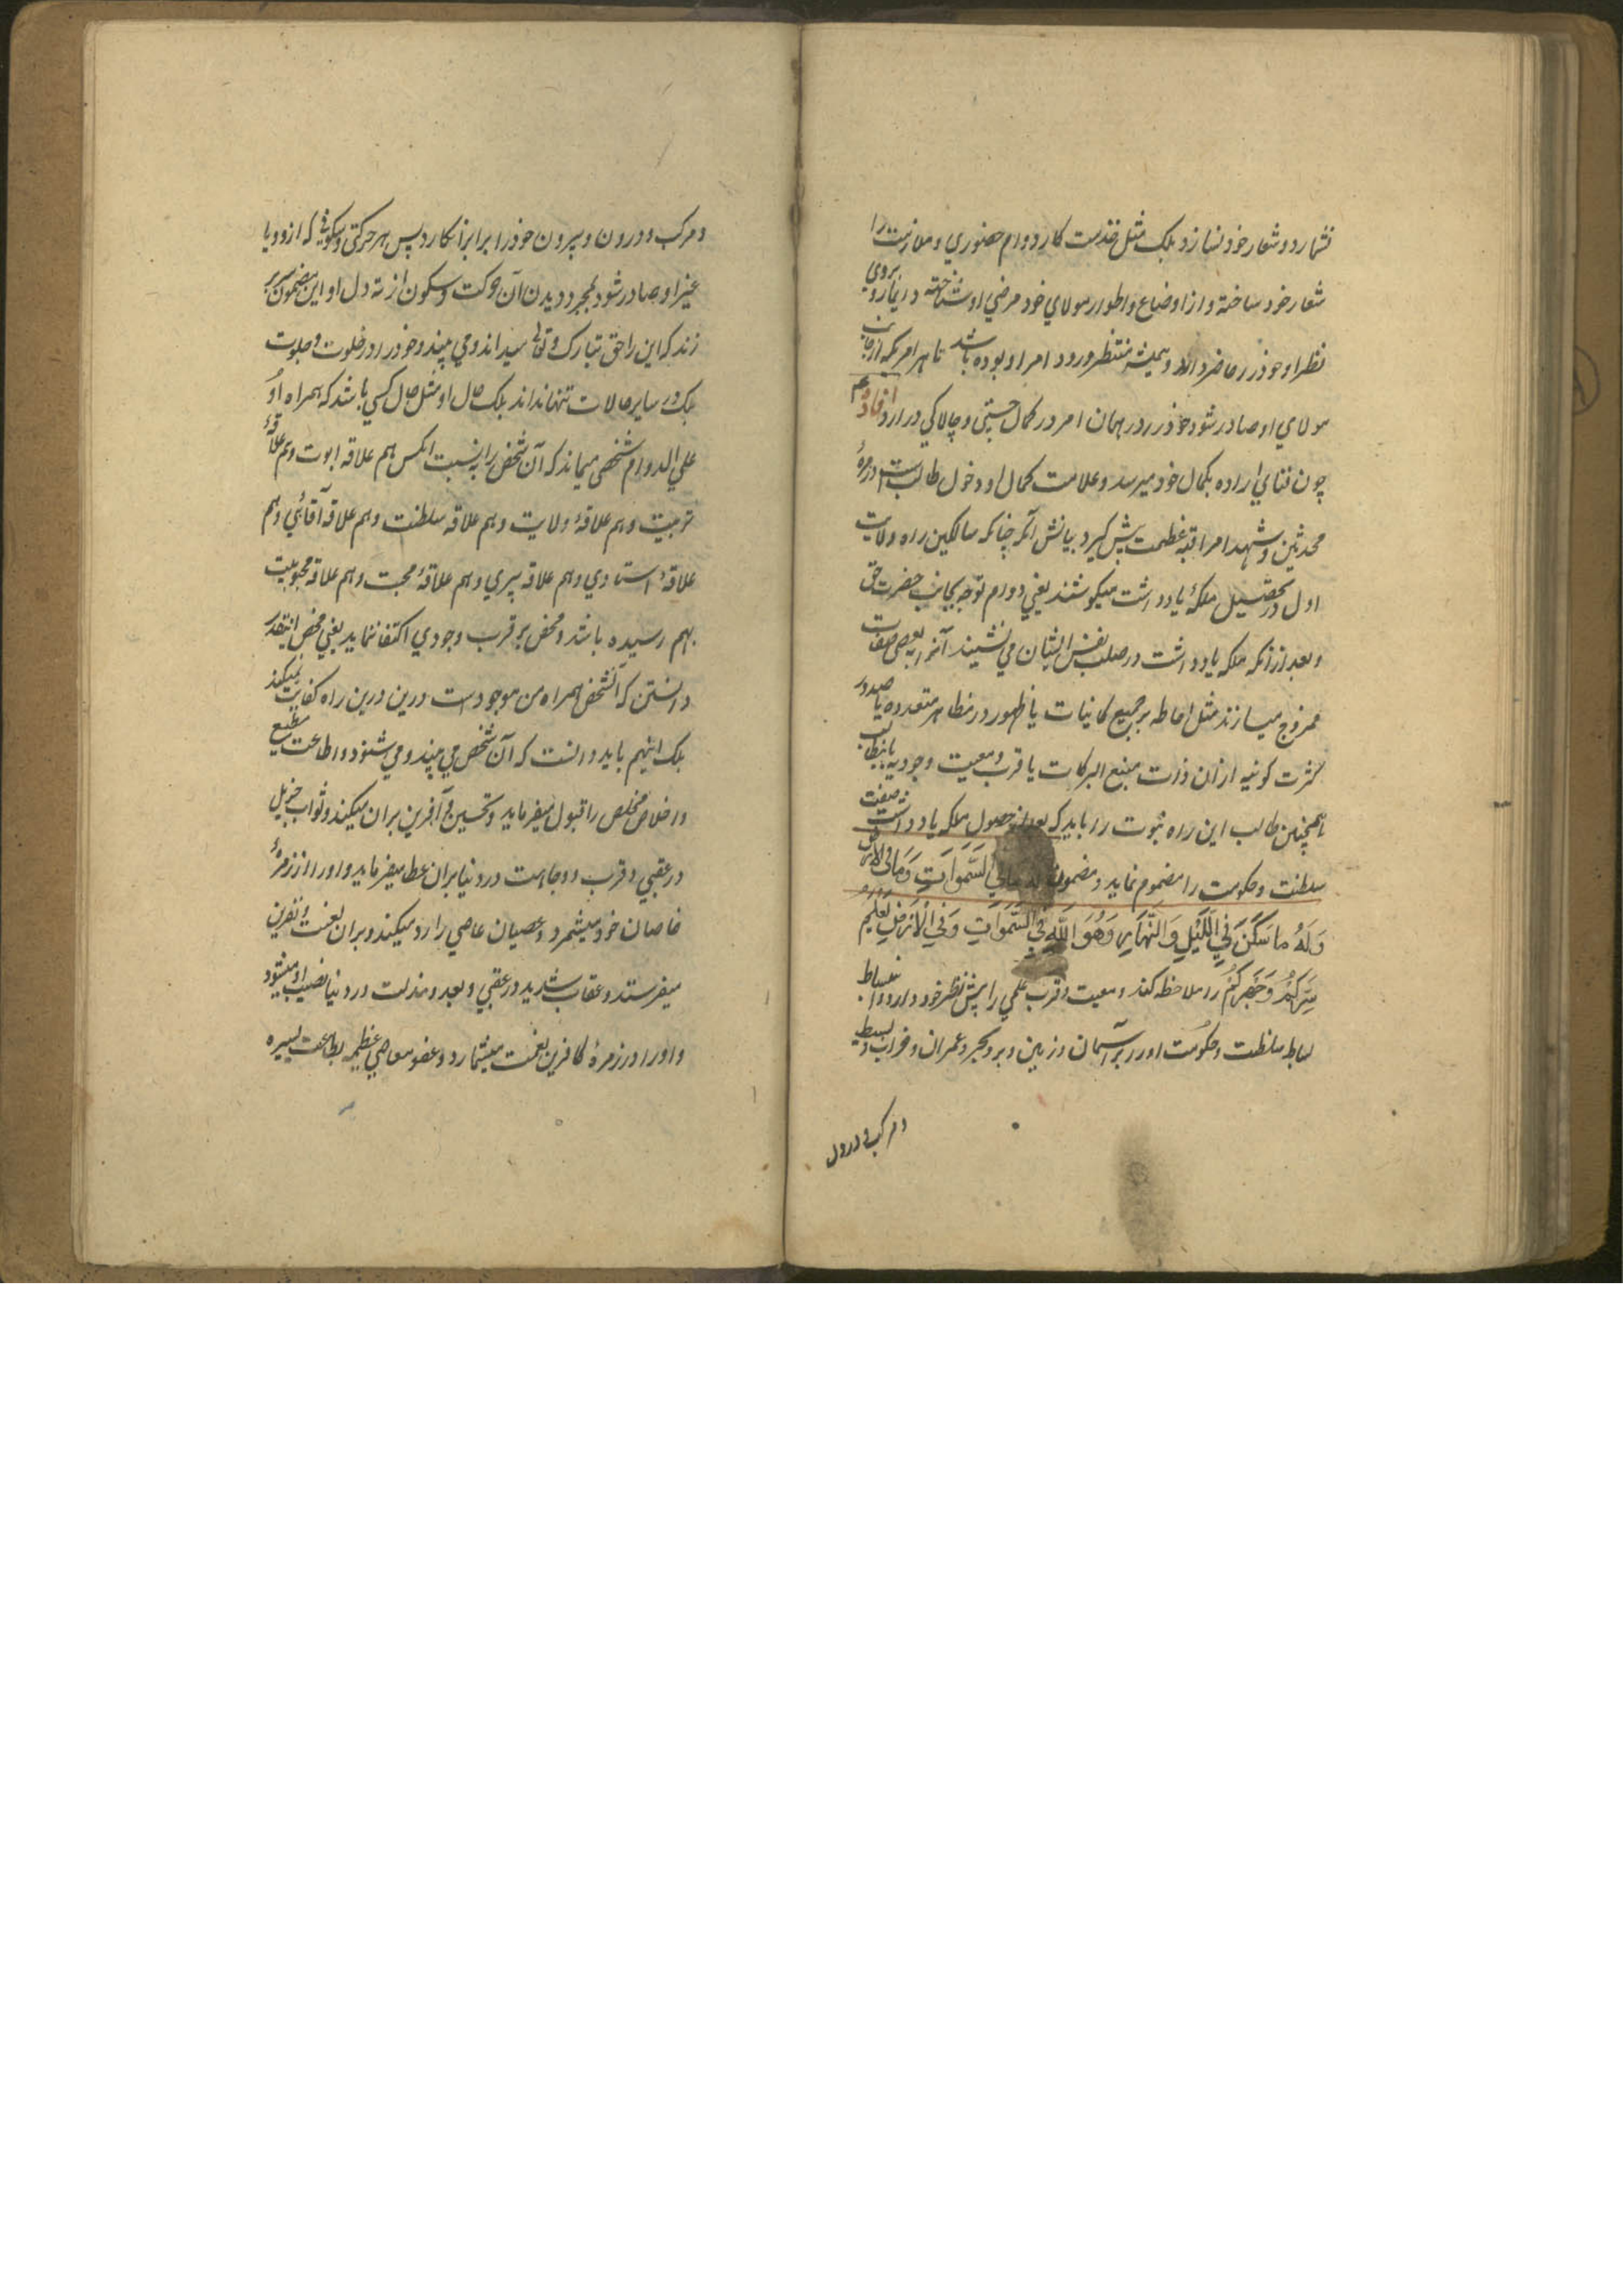 نشمارد و شعار خود نسازد بلکه مثل خدمت کار دوام حضوري و ملازمت را
شعار خود ساخته و از اوضاع و اطوار مولاي خود مرضي او شناخته دائما روبروي
نظر او خود را حاضر دارد و هميشه منتظر ورود امر او بوده باشد تا هر امريکه از جانب
مولاي او صادر شود خود را در همان امر در کمال چستي و چالاکي در آرد افاده
چون فناي اراده بکمال خود ميرسد و علامت کمال او دخول طالب است در زمرهٔ
محدثين و شهدا مراقبه عظمت پيش گيرد بيانش آنکه چنانکه سالکين راه ولايت
اول در تحصيل ملکهٔ يادداشت ميکوشند يعني دوام توجه بجانب حضرت حق
و بعد از آنکه ملکه يادداشت در صلب نفس ايشان مي نشيند آنرا ببعضي صفات
ممزوج ميسازند مثل احاطه بر جميع کائنات يا ظهور در مظاهر متعدده يا صدور
کثرت کونيه از آن ذات منبع البرکات يا قرب و معيت وجوديه
همچنين طالب اين راه نبوت را بايد که بعد از حصول ملکه يادداشت صفت
سلطنت و حکومت را مضموم نمايد و مضمون له ما في السموات وما في الارض
وَلَهُ ما سَكَنَ فِي اللَّيْلِ وَالنَّهَارِ وَهُوَ اللهُ فِي السَّموَاتِ وَفِي الْاَرْضِ يَعْلَمُ
سِرَّكُمْ وَجَهْرَكُمْ را ملاحظه کند و معيت و قرب علمي را پيش نظر خود دارد و انبساط
بساط سلطنت و حکومت او را بر آسمان و زمين و بر و بحر و عمران و خراب و بسيط
و مرکب و درون
و مرکب و درون و بيرون خود را برابر انکارد پس هر حرکتي و سکوني که از و يا
غير او صادر شود بمجرد ديدن آن حرکت و سکون از ته دل او اين مضمون سر بر
زند که اين را حق تبارک و تعالي ميداند و مي بيند و خود را در خلوت و جلوت
بلکه در ساير حالات تنها نداند بلکه حال او مثل حال کسي باشد که همراه او
علي الدوام شخصي ميماند که آن شخص را به نسبت اکس هم علاقه ابوت و هم علاقهٔ
تربيت و هم علاقهٔ ولايت و هم علاقه سلطنت و هم علاقه آقائي و هم
علاقهٔ استادي و هم علاقه پيري و هم علاقهٔ محبت و هم علاقه محبوبيت
بهم رسيده باشد و محض بر قرب وجودي اکتفا ننمايد يعني محض اينقدر
دانستن که آنشخص همراه من موجود است درين درين راه کفايت نميکند
بلکه اينهم بايد دانست که آن شخص مي بيند و مي شنود و اطاعت مطيع
و اخلاص مخلص را قبول ميفرمايد و تحسين و آفرين بران ميکند و ثواب جزيل
در عقبي و قرب و وجاهت در دنيا بران عطا ميفرمايد و او را از زمرهٔ
خاصان خود ميشمرد و عصيان عاصي را رد ميکند و بران لعنت و نفرين
ميفرستد و عقاب شديد در عقبي و بعد و مذلت در دنيا نصيب او ميشود
و او را در زمرهٔ کافرين نعمت ميشمارد و عفو معاصي عظيمه بطاعت يسيره